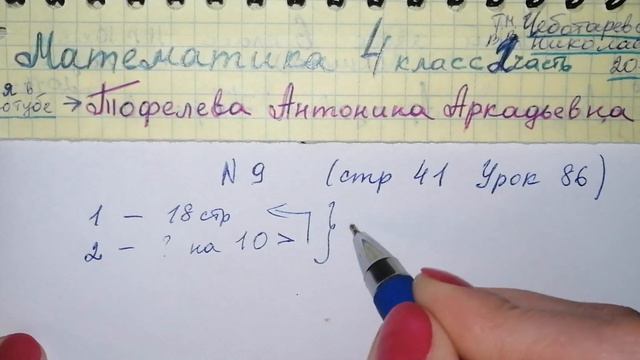 Математика 4 класс 2 часть
Т.Н. Чеботарева
В.В. Николае
20
я в
ютубе → Тофелева Антонина Аркадьевна
N 9 (стр 41 Урок 86)
1 – 18 стр
2 – ? на 10 >